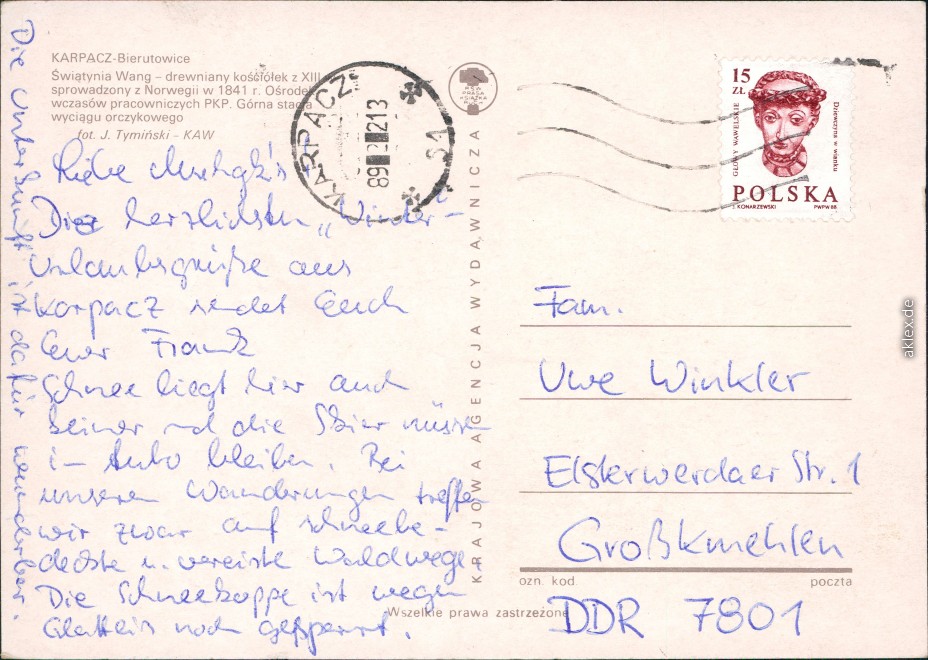 KARPACZ-Bierutowice
Świątynia Wang – drewniany kościółek z XIII
sprowadzony z Norwegii w 1841 r. Ośrodek
wczasów pracowniczych PKP. Górna stacja
wyciągu orczykowego
fot. J. Tymiński - KAW
Liebe
Die herzlichsten „Winter"-
urlaubsgrüße aus
Karpacz sendet Euch
Euer Frank
Schnee liegt hier auch
keiner und die Skier müssen
im Auto bleiben. Bei
unseren Wanderungen treffen
wir zwar auf schneebe-
deckte u. vereiste Waldwege
Die Schneekoppe ist wegen
Glatteis noch gesperrt.
Die Unterkunft ist dafür wunderbar.
KARPACZ
89 2 213
S1
KRAJOWA AGENCJA WYDAWNICZA
RSW
PRASA
KSIĄŻKA
RUCH
15
ZŁ
GŁOWY WAWELSKIE
Dziewczyna w wianku
POLSKA
S. KONARZEWSKI PWPW 85
Fam.
Uwe Winkler
Elsterwerdaer Str. 1
Großkmehlen
ozn. kod. poczta
DDR 7801
Wszelkie prawa zastrzeżone
aklex.de